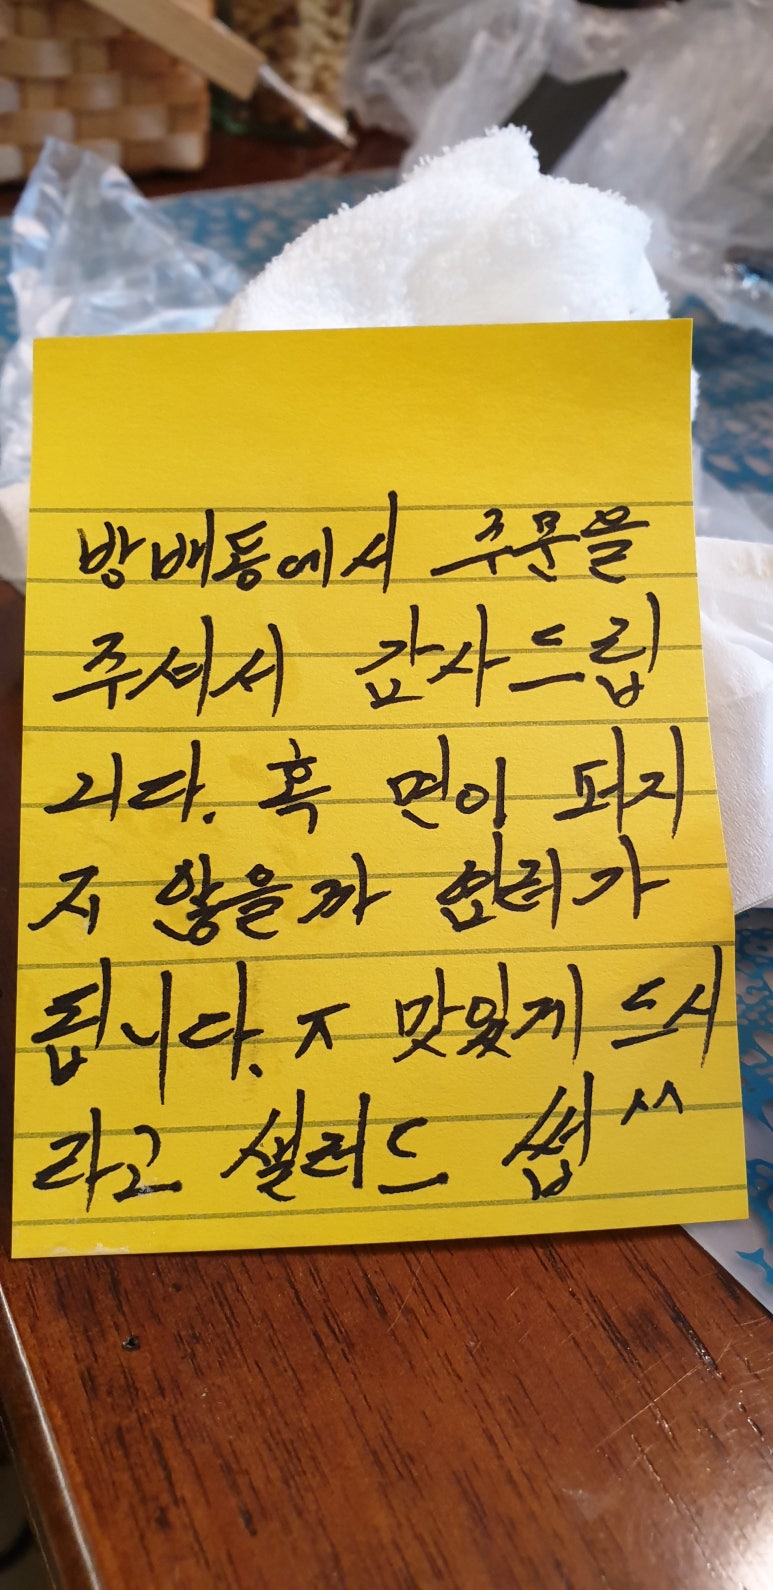 방배동에서 주문을
주셔서 감사드립
니다. 혹 면이 퍼지
지 않을까 염려가
됩니다. ㅠ 맛있게 드시
라고 샐러드 썹 ^^